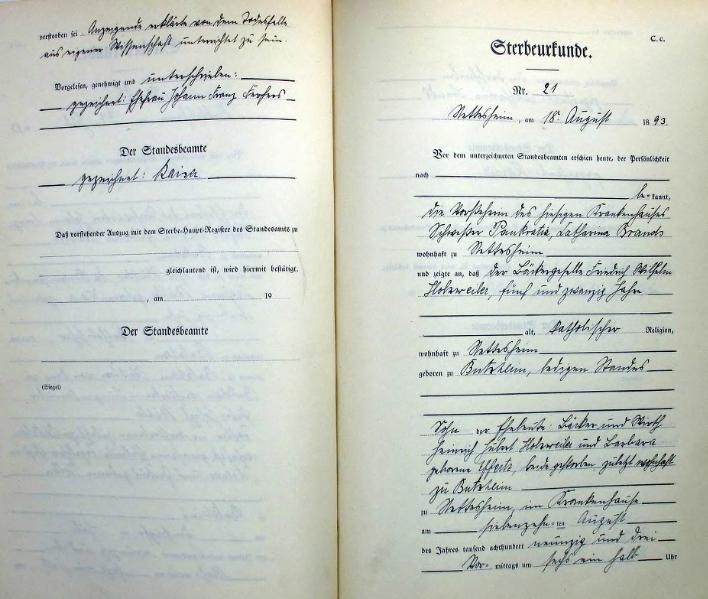 verstorben sei Anzeigende erklärte von dem Todesfalle
aus eigener Wissenschaft unterrichtet zu sein.
Vorgelesen, genehmigt und unterschrieben:
gezeichnet: Ehefrau Johann Franz
Der Standesbeamte
gezeichnet:
Daß vorstehender Auszug mit dem Sterbe-Haupt-Register des Standesamts zu
gleichlautend ist, wird hiermit bestätigt.
, am 19
Der Standesbeamte
(Siegel)
C. c.
Sterbeurkunde.
Nr. 21
Nettesheim, am 18. August 1893.
Vor dem unterzeichneten Standesbeamten erschien heute, der Persönlichkeit
nach
be kannt,
die Vorsteherin des hiesigen Krankenhauses
Schwester Pankratia, Catharina Brands
wohnhaft zu Nettesheim
und zeigte an, daß der Bäckergeselle Friedrich Wilhelm
Holzweiler, fünf und zwanzig Jahre
alt, katholischer Religion,
wohnhaft zu Nettesheim
geboren zu Butzheim, ledigen Standes
Sohn der Eheleute: Bäcker und Wirth
Heinrich Hubert Holzweiler und Barbara
geborene Effertz, beide gestorben zuletzt wohnhaft
zu Butzheim
zu Nettesheim, im Krankenhause
am siebenzehnten August
des Jahres tausend achthundert neunzig und drei
Vor- mittags um sechs ein halb Uhr